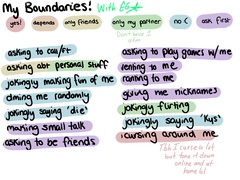 My Boundaries! With
yes!
depends
only friends
only my partner
no :(
ask first
Don't have 1
asking to call/ft
asking abt personal stuff
jokingly making fun of me
dming me randomly
jokingly saying 'die'
making small talk
asking to be friends
asking to play games w/me
venting to me
ranting to me
giving me nicknames
jokingly flirting
jokingly saying 'kys'
cursing around me
Tbh I curse a lot
but tone it down
online and at
home lol